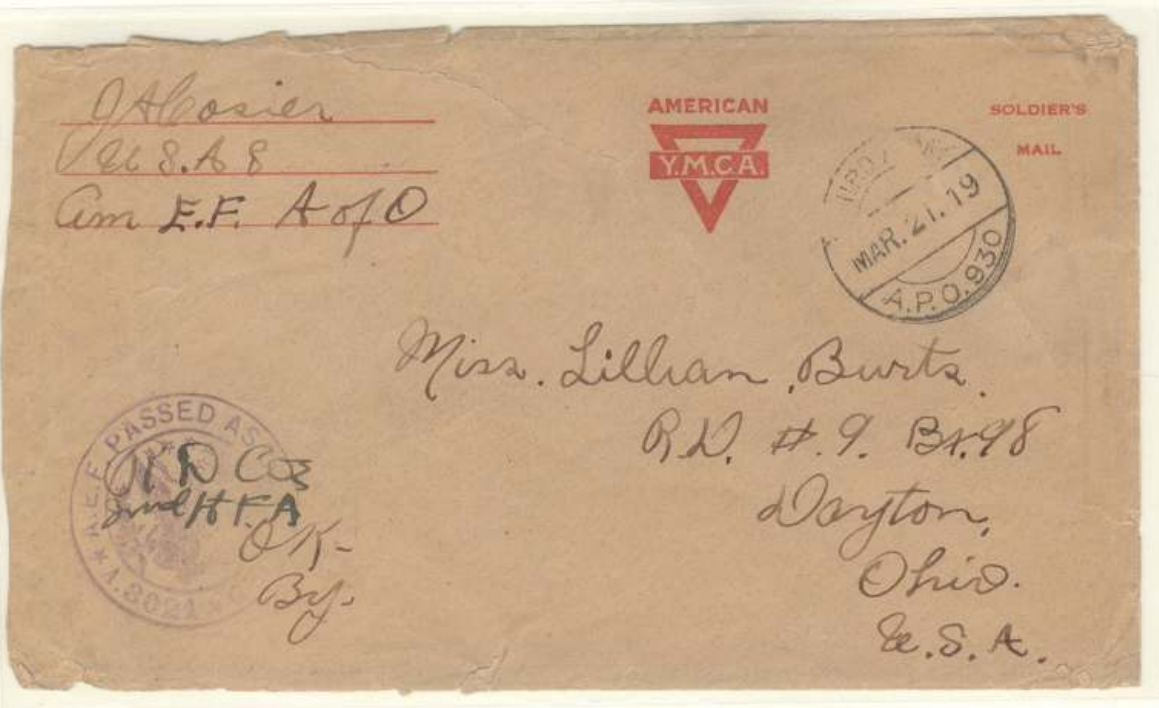 JACosier
U.S.A S
Am E.F. A of O
AMERICAN
Y.M.C.A.
SOLDIER'S
MAIL
MAR. 21. 19
A.P.O. 930
Miss. Lillian Burts.
R.D. #9. Bx.98
Dayton,
Ohio.
U.S.A.
A.E.F. PASSED AS
OK-
By.